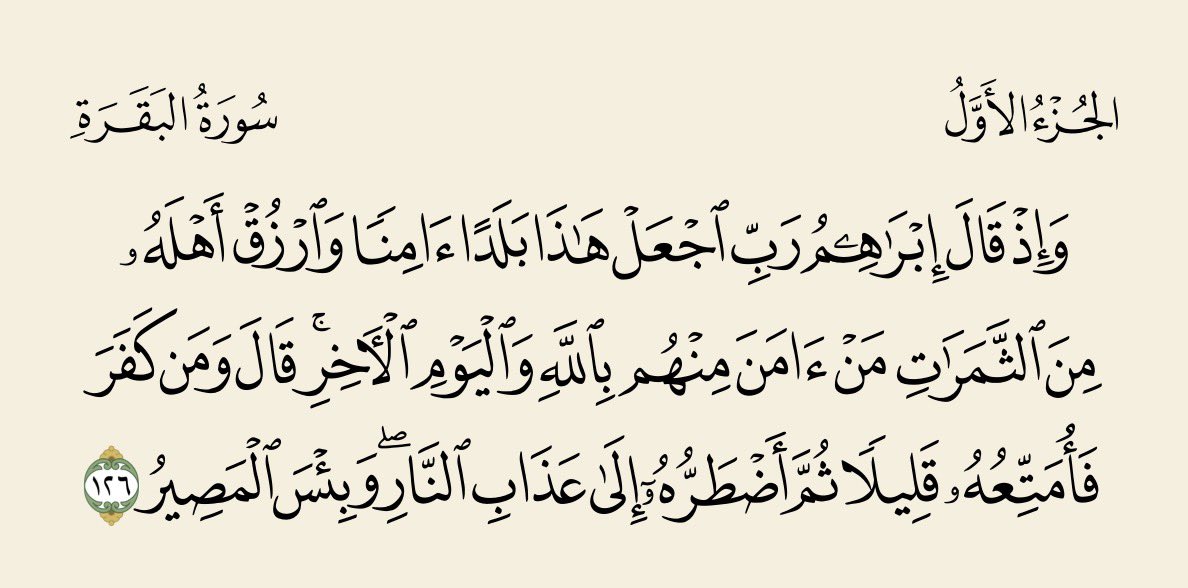 الجُزْءُ الأَوَّلُ
سُورَةُ البَقَرَةِ
وَإِذۡ قَالَ إِبۡرَٰهِـۧمُ رَبِّ ٱجۡعَلۡ هَٰذَا بَلَدًا ءَامِنٗا وَٱرۡزُقۡ أَهۡلَهُۥ
مِنَ ٱلثَّمَرَٰتِ مَنۡ ءَامَنَ مِنۡهُم بِٱللَّهِ وَٱلۡيَوۡمِ ٱلۡأٓخِرِۚ قَالَ وَمَن كَفَرَ
فَأُمَتِّعُهُۥ قَلِيلٗا ثُمَّ أَضۡطَرُّهُۥٓ إِلَىٰ عَذَابِ ٱلنَّارِۖ وَبِئۡسَ ٱلۡمَصِيرُ ١٢٦